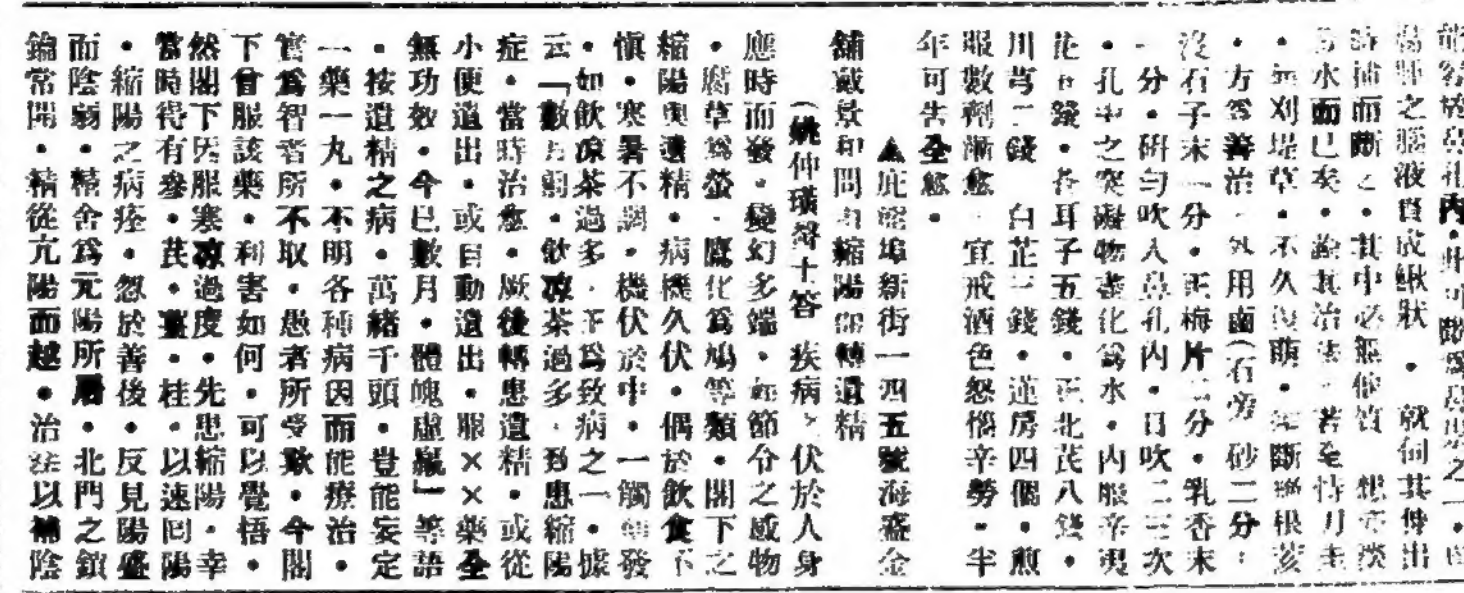 之腦液貫成鰍狀・就何其伸出
時捕而斷之・其中必無他質
水而已矣・論其治法・若至
無刈堤草・不久復萌・無斷草根
・方為善治・外用鹵(石旁)砂二分・
沒石子末一分・正梅片二分・乳香末
一分・研勻吹入鼻孔內・日吹二三次
・孔中之突礙物盡化為水・內服辛夷
花五錢・蒼耳子五錢・正北芪八錢・
川芎二錢 白芷三錢・蓮房四個・煎
服數劑漸愈 宜戒酒色怒惱辛勞・半
年可告全愈・
▲庇能埠新街一四五號海盛金
舖戴景和問由縮陽卻轉遺精
(姚仲璜聲十答) 疾病之伏於人身
應時而發・變幻多端・如節令之感物
・腐草為螢・鷹化為鳩等類・閣下之
縮陽與遺精・病機久伏・偶於飲食不
慎・寒暑不調・機伏於中・一觸即發
・如飲凉茶過多・正為致病之一・據
云「數月前・飲凉茶過多・致患縮陽
症・當時治愈・厥後轉患遺精・或從
小便遺出・或自動遺出・服××藥全
無功效・今已數月・體魄虛羸」等語
・按遺精之病・萬緒千頭・豈能妄定
一藥一丸・不明各種病因而能療治・
實為智者所不取・愚者所受欺・今閣
下曾服該藥・利害如何・可以覺悟・
然閣下因服寒凉過度・先患縮陽・幸
當時得有參・芪・薑・桂・以速回陽
・縮陽之病痊・忽於善後・反見陽盛
而陰弱・精舍為元陽所居・北門之鎖
鑰常開・精從亢陽而越・治法以補陰